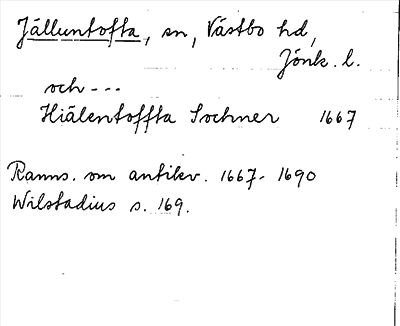 Jälluntofta, sn, Västbo hd,
Jönk. l.
och ---
Hiälentoffta Sochner 1667
Ranns. om antikv. 1667-1690
Wilstadius s. 169.